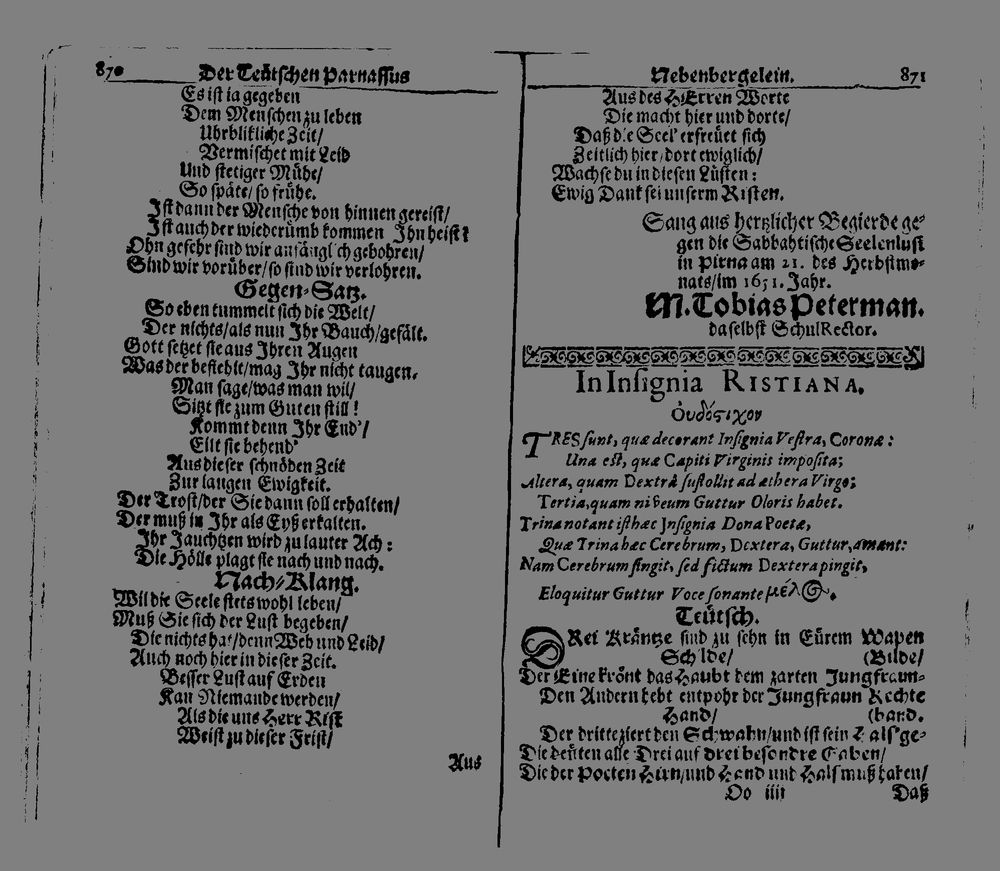 870 Der Teütschen Parnassus
Es ist ia gegeben
Dem Menschen zu leben
Uhrblikliche Zeit/
Vermischet mit Leid
Und stetiger Mühe/
So späte/ so frühe.
Ist dann der Mensche von hinnen gereist/
Ist auch der wiederümb kommen Ihn heist?
Ohn gefehr sind wir anfänglich gebohren/
Sind wir vorüber/ so sind wir verlohren.
Gegen-Satz.
So eben tummelt sich die Welt/
Der nichts/ als nun Ihr Bauch/ gefält.
Gott setzet sie aus Ihren Augen
Was der befiehlt/ mag Ihr nicht taugen.
Man sage/ was man wil/
Sitzt sie zum Guten still!
Kommt denn Ihr End'/
Eilt sie behend'
Aus dieser schnöden Zeit
Zur langen Ewigkeit.
Der Trost/ der Sie dann soll erhalten/
Der muß in Ihr als Eyß erkalten.
Ihr Jauchtzen wird zu lauter Ach:
Die Hölle plagt sie nach und nach.
Nach-Klang.
Wil die Seele stets wohl leben/
Muß Sie sich der Lust begeben/
Die nichts hat/ denn Weh und Leid/
Auch noch hier in dieser Zeit.
Besser Lust auf Erden
Kan Niemande werden/
Als die uns Herr Rist
Weist zu dieser Frist/
Aus
Nebenbergelein. 871
Aus des HErren Worte
Die macht hier und dorte/
Daß die Seel' erfreüet sich
Zeitlich hier/ dort ewiglich/
Wachse du in diesen Lüsten:
Ewig Dank sei unserm Risten.
Sang aus hertzlicher Begierde ge-
gen die Sabbahtische Seelenlust
in Pirna am 21. des Herbstmo-
nats/ im 1651. Jahr.
M. Tobias Peterman.
daselbst SchulRector.
In Insignia RISTIANA.
Ὀγδόςιχον
TRES sunt, quæ decorant Insignia Vestra, Coronæ:
Una est, quæ Capiti Virginis imposita;
Altera, quam Dextrâ sustollit ad æthera Virgo;
Tertia, quam niveum Guttur Oloris habet.
Trina notant isthæc Insignia Dona Poetæ,
Quæ Trina hæc Cerebrum, Dextera, Guttur, amant:
Nam Cerebrum fingit, sed fictum Dextera pingit,
Eloquitur Guttur Voce sonante μέλ⊙.
Teütsch.
DRei Kräntze sind zu sehn in Eürem Wapen
Schilde/ (Bilde/
Der Eine krönt das Haubt dem zarten Jungfraun-
Den Andern hebt entpohr der Jungfraun Rechte
Hand/ (band.
Der dritte ziert den Schwahn/ und ist sein Hals'ge-
Die deüten alle Drei auf drei besondre Gaben/
Die der Poeten Hirn/ und Hand und Hals muß haben/
Oo iiii Daß